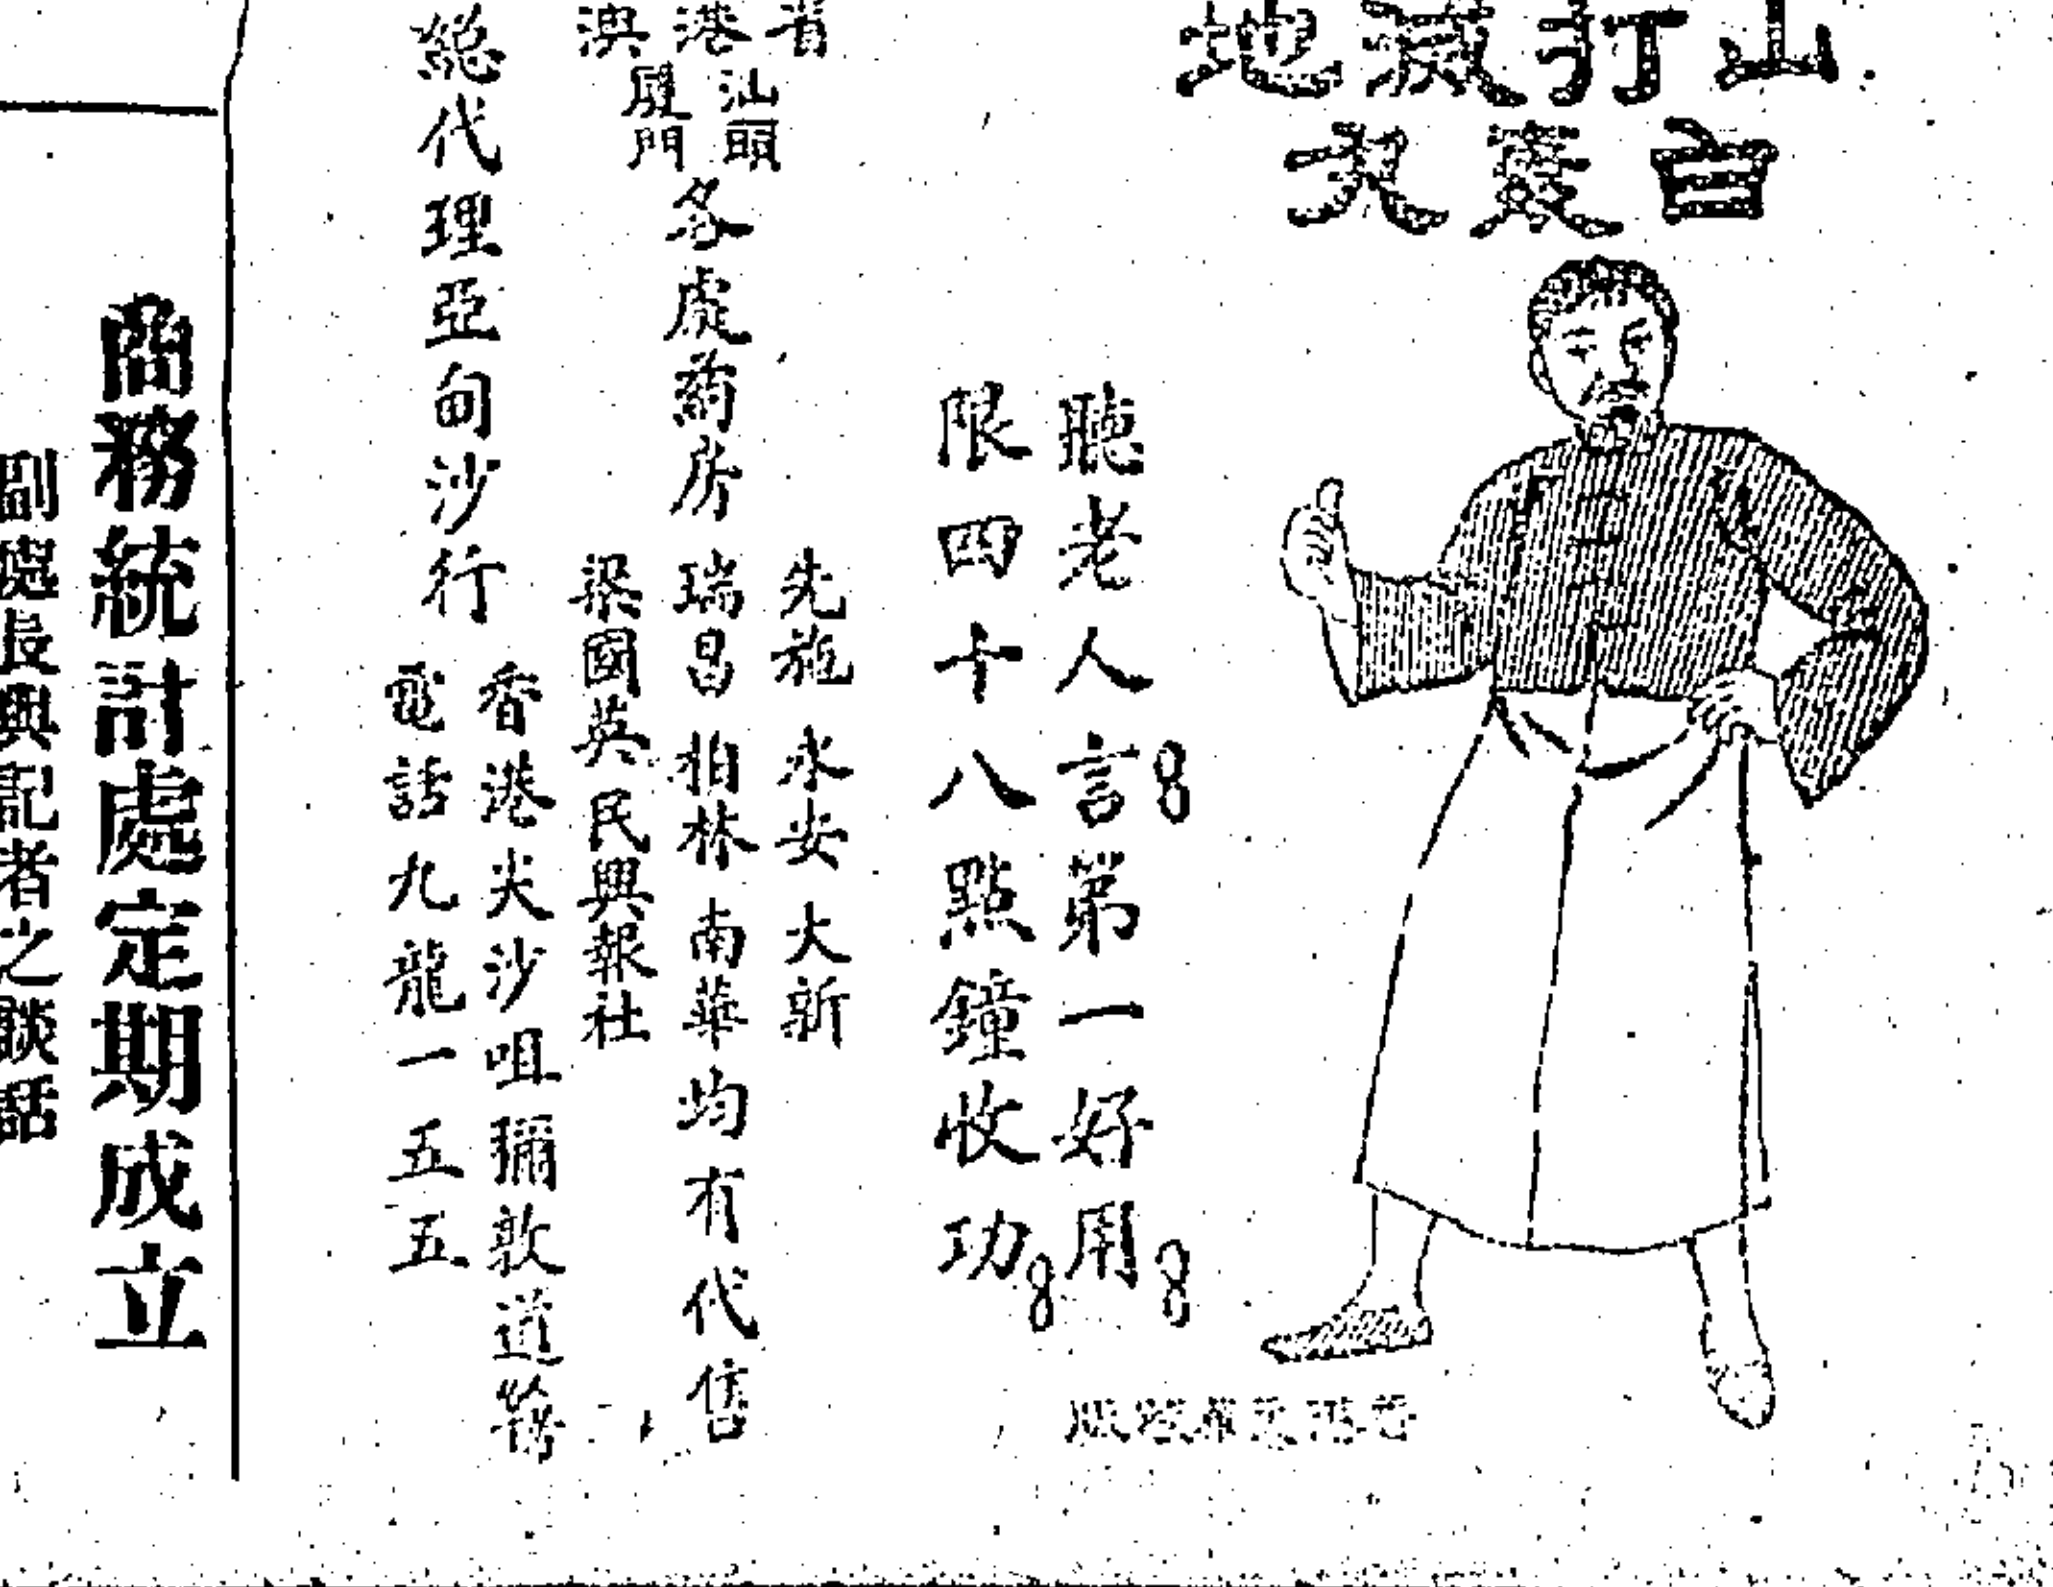 山打根地
言裘大
聽老人言第一好用
限四十八點鐘收功
省港澳
汕頭
廈門
各處葯房
先施 永安 大新
瑞昌 柏林 南華 均有代售
梁國英 民興報社
總代理亞甸沙行
香港尖沙咀彌敦道
電話九龍一五五
商務統計處定期成立
副處長與記者之談話